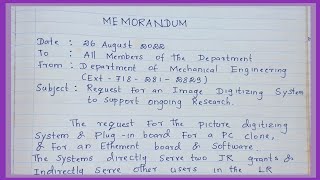 MEMORANDUM
Date : 26 August 2022
To : All Members of the Department
From : Department of Mechanical Engineering
(Ext - 718 - 281 - 2829)
Subject : Request for an Image Digitizing System
to support ongoing Research.
The request for the picture digitizing
System & Plug-in board For a PC clone,
& For an Ethernent board & Software.
The Systems directly Serve two JR grants &
Indirectly Serve other users in the LR